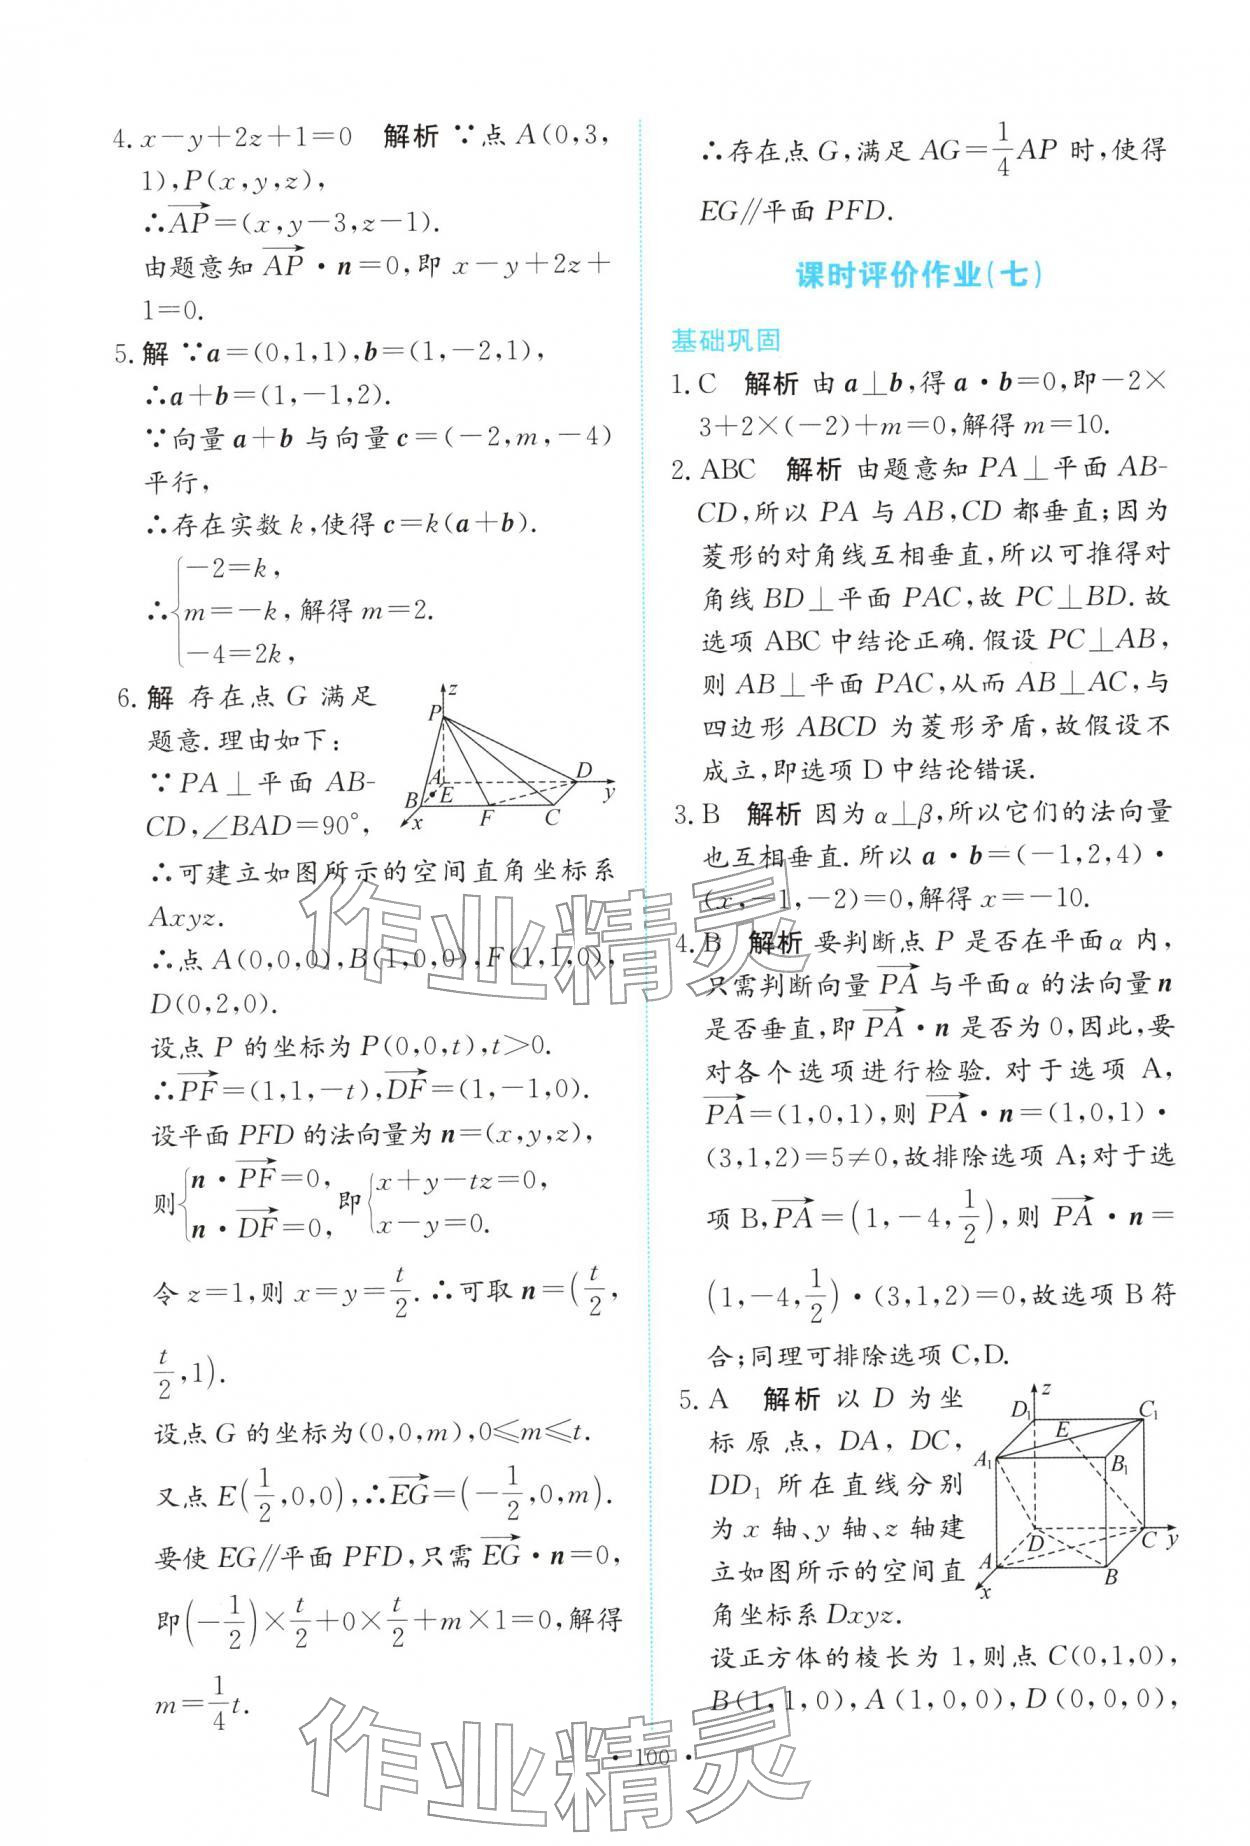 4. x−y+2z+1=0 解析 ∵点 A(0,3,
1),P(x,y,z),
∴AP→=(x,y−3,z−1).
由题意知 AP→·n=0,即 x−y+2z+
1=0.
5. 解 ∵a=(0,1,1),b=(1,−2,1),
∴a+b=(1,−1,2).
∵向量 a+b 与向量 c=(−2,m,−4)
平行,
∴存在实数 k,使得 c=k(a+b).
∴{−2=k,
m=−k,解得 m=2.
−4=2k,
6. 解 存在点 G 满足
题意.理由如下:
∵PA⊥平面 AB-
CD,∠BAD=90°,
z
P
A
D
B
E
y
x
F
C
∴可建立如图所示的空间直角坐标系
Axyz.
∴点 A(0,0,0),B(1,0,0),F(1,1,0),
D(0,2,0).
设点 P 的坐标为 P(0,0,t),t>0.
∴PF→=(1,1,−t),DF→=(1,−1,0).
设平面 PFD 的法向量为 n=(x,y,z),
则{n·PF→=0, n·DF→=0, 即{x+y−tz=0, x−y=0.
令 z=1,则 x=y=t/2.∴可取 n=(t/2,
t/2,1).
设点 G 的坐标为(0,0,m),0⩽m⩽t.
又点 E(1/2,0,0),∴EG→=(−1/2,0,m).
要使 EG∥平面 PFD,只需 EG→·n=0,
即(−1/2)×t/2+0×t/2+m×1=0,解得
m=1/4t.
∴存在点 G,满足 AG=1/4AP 时,使得
EG∥平面 PFD.
课时评价作业(七)
基础巩固
1. C 解析 由 a⊥b,得 a·b=0,即−2×
3+2×(−2)+m=0,解得 m=10.
2. ABC 解析 由题意知 PA⊥平面 AB-
CD,所以 PA 与 AB,CD 都垂直;因为
菱形的对角线互相垂直,所以可推得对
角线 BD⊥平面 PAC,故 PC⊥BD.故
选项 ABC 中结论正确.假设 PC⊥AB,
则 AB⊥平面 PAC,从而 AB⊥AC,与
四边形 ABCD 为菱形矛盾,故假设不
成立,即选项 D 中结论错误.
3. B 解析 因为 α⊥β,所以它们的法向量
也互相垂直.所以 a·b=(−1,2,4)·
(x,−1,−2)=0,解得 x=−10.
4. B 解析 要判断点 P 是否在平面 α 内,
只需判断向量 PA→ 与平面 α 的法向量 n
是否垂直,即 PA→·n 是否为 0,因此,要
对各个选项进行检验.对于选项 A,
PA→=(1,0,1),则 PA→·n=(1,0,1)·
(3,1,2)=5≠0,故排除选项 A;对于选
项 B,PA→=(1,−4,1/2),则 PA→·n=
(1,−4,1/2)·(3,1,2)=0,故选项 B 符
合;同理可排除选项 C,D.
5. A 解析 以 D 为坐
标原点,DA,DC,
DD₁ 所在直线分别
为 x 轴、y 轴、z 轴建
立如图所示的空间直
角坐标系 Dxyz.
z
D₁
C₁
E
A₁
B₁
D
C
y
A
x
B
设正方体的棱长为 1,则点 C(0,1,0),
B(1,1,0),A(1,0,0),D(0,0,0),
·100·
作业精灵
作业精灵